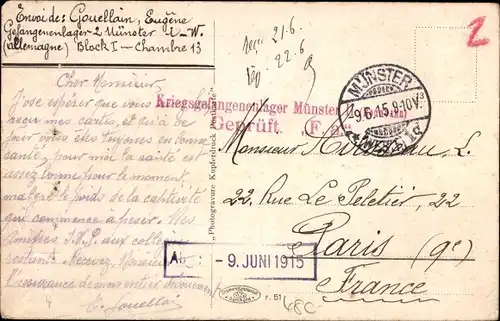 Envoi de: Gouellain, Eugène
Gefangenenlager 2 Münster i-W.
(allemagne) Block I — Chambre 13
Cher Monsieur,
J'ose espérer que vous
reçu mes cartes, et qu'à ce
jour vous êtes toujours en bonne
santé, pour moi la santé est
assez bonne pour le moment,
malgré le poids de la captivité
qui commence à peser. Mes
amitiés S.V.P. aux collègues
restant. Recevez Monsieur
l'assurance de mon entier dévouement
E. Gouellain
Kriegsgefangenenlager Münster
Geprüft. (F. a.)
"Photogravure Kupferdruck Postkarte"
21.6
22.6
2
MÜNSTER
9.6.15.9-10V.
(WESTF.)
Monsieur L.
22, Rue Le Peletier, 22
Paris (9e)
France
- 9. JUNI 1915
r. 51
480